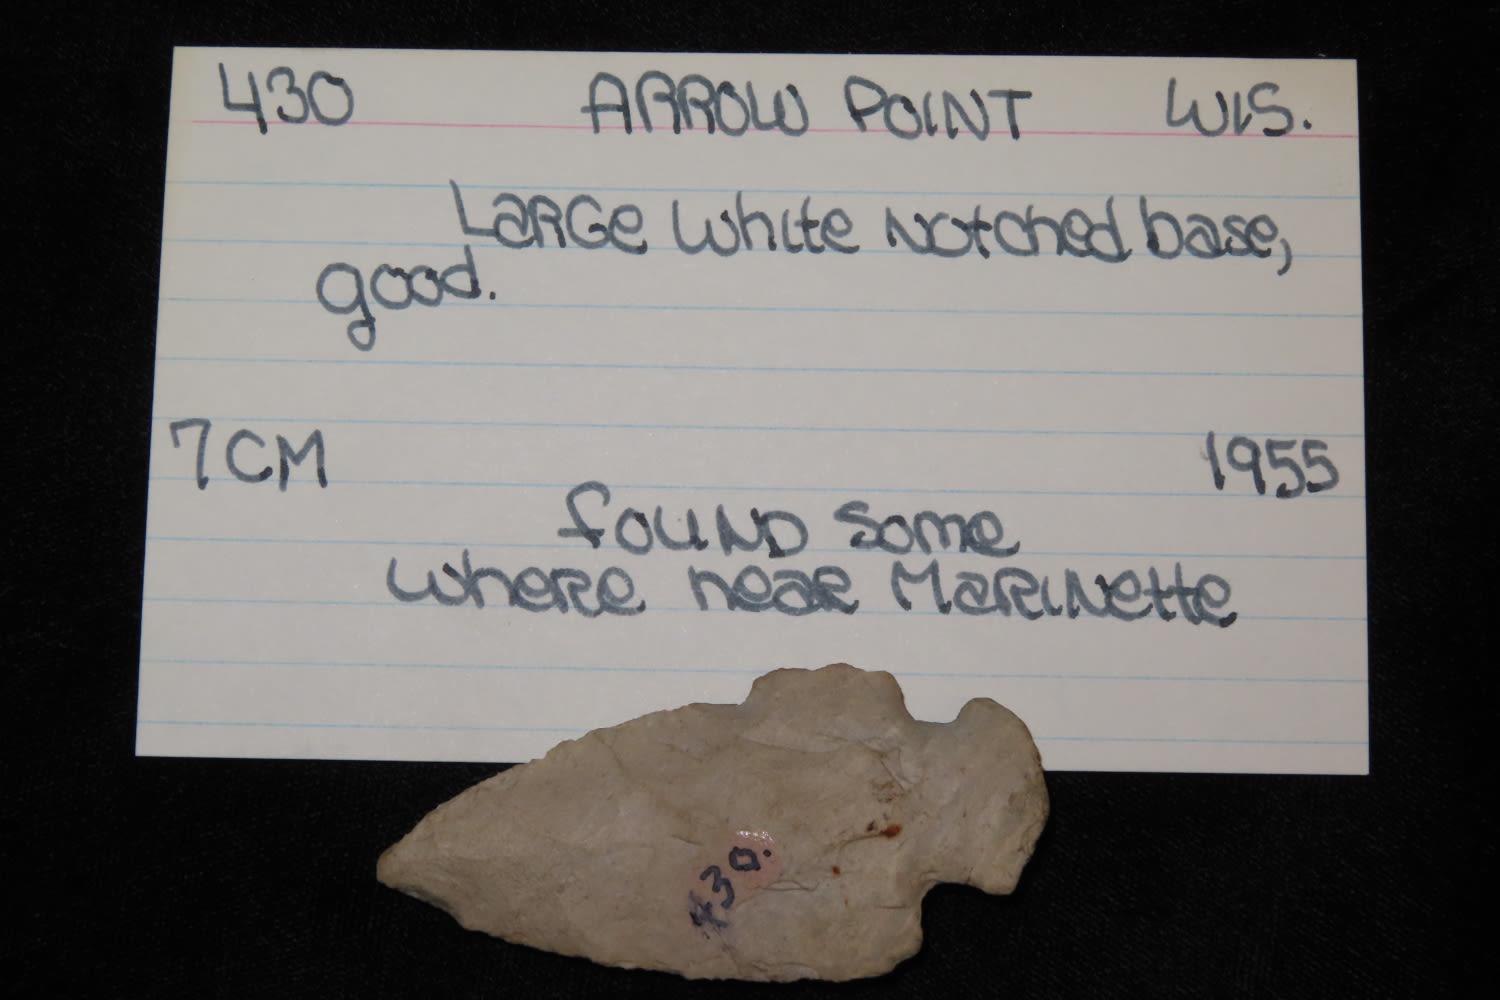 430 ARROW POINT WIS.
LARGE white Notched base,
good.
7CM 1955
fouND some
where near MaRiNette
430.